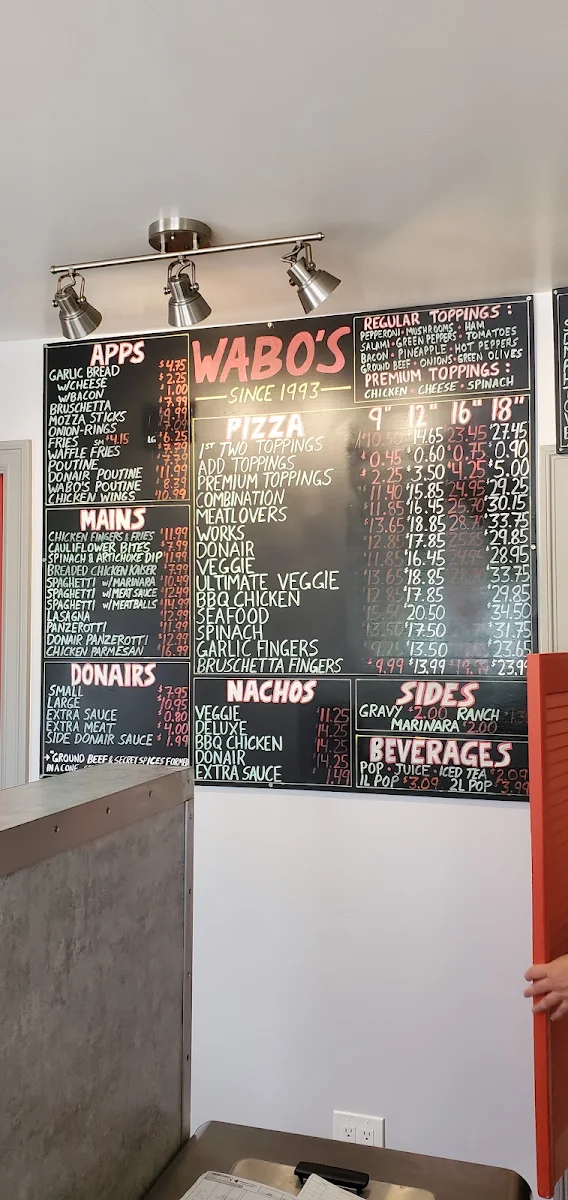 APPS
GARLIC BREAD $4.75
W/CHEESE $2.25
W/BACON $1.00
BRUSCHETTA $7.99
MOZZA STICKS
ONION-RINGS
FRIES SM $4.15 LG $6.25
WAFFLE FRIES
POUTINE
DONAIR POUTINE $11.99
WABO'S POUTINE $8.39
CHICKEN WINGS $10.99
MAINS
CHICKEN FINGERS & FRIES $11.99
CAULIFLOWER BITES $7.99
SPINACH & ARTICHOKE DIP
BREADED CHICKEN KAISER $7.99
SPAGHETTI W/MARINARA $10.49
SPAGHETTI W/MEAT SAUCE $12.49
SPAGHETTI W/MEATBALLS $14.99
LASAGNA $12.99
PANZEROTTI $11.99
DONAIR PANZEROTTI $12.99
CHICKEN PARMESAN $16.99
DONAIRS
SMALL $7.95
LARGE $10.95
EXTRA SAUCE $0.80
EXTRA MEAT $4.00
SIDE DONAIR SAUCE $1.99
GROUND BEEF & SECRET SPICES FORMED
IN A CONE
WABO'S
SINCE 1993
REGULAR TOPPINGS:
PEPPERONI • MUSHROOMS • HAM
SALAMI • GREEN PEPPERS • TOMATOES
BACON • PINEAPPLE • HOT PEPPERS
GROUND BEEF • ONIONS • GREEN OLIVES
PREMIUM TOPPINGS:
CHICKEN • CHEESE • SPINACH
PIZZA 9" 12" 16" 18"
1ST TWO TOPPINGS $10.50 $14.65 $23.45 $27.45
ADD TOPPINGS $0.45 $0.60 $0.75 $0.90
PREMIUM TOPPINGS $2.25 $3.50 $4.25 $5.00
COMBINATION $11.40 $15.85 $24.95 $29.25
MEATLOVERS $11.85 $16.45 $30.15
WORKS $13.65 $18.85 $33.75
DONAIR $12.85 $17.85 $29.85
VEGGIE $11.85 $16.45 $28.95
ULTIMATE VEGGIE $13.65 $18.85 $33.75
BBQ CHICKEN $17.85 $29.85
SEAFOOD $20.50 $34.50
SPINACH $17.50 $31.75
GARLIC FINGERS $13.50 $23.65
BRUSCHETTA FINGERS $9.99 $13.99 $23.99
NACHOS
VEGGIE $11.25
DELUXE $14.25
BBQ CHICKEN $14.25
DONAIR $14.25
EXTRA SAUCE $1.49
SIDES
GRAVY $2.00 RANCH
MARINARA $2.00
BEVERAGES
POP • JUICE • ICED TEA $2.09
1L POP $3.09 2L POP $3.99